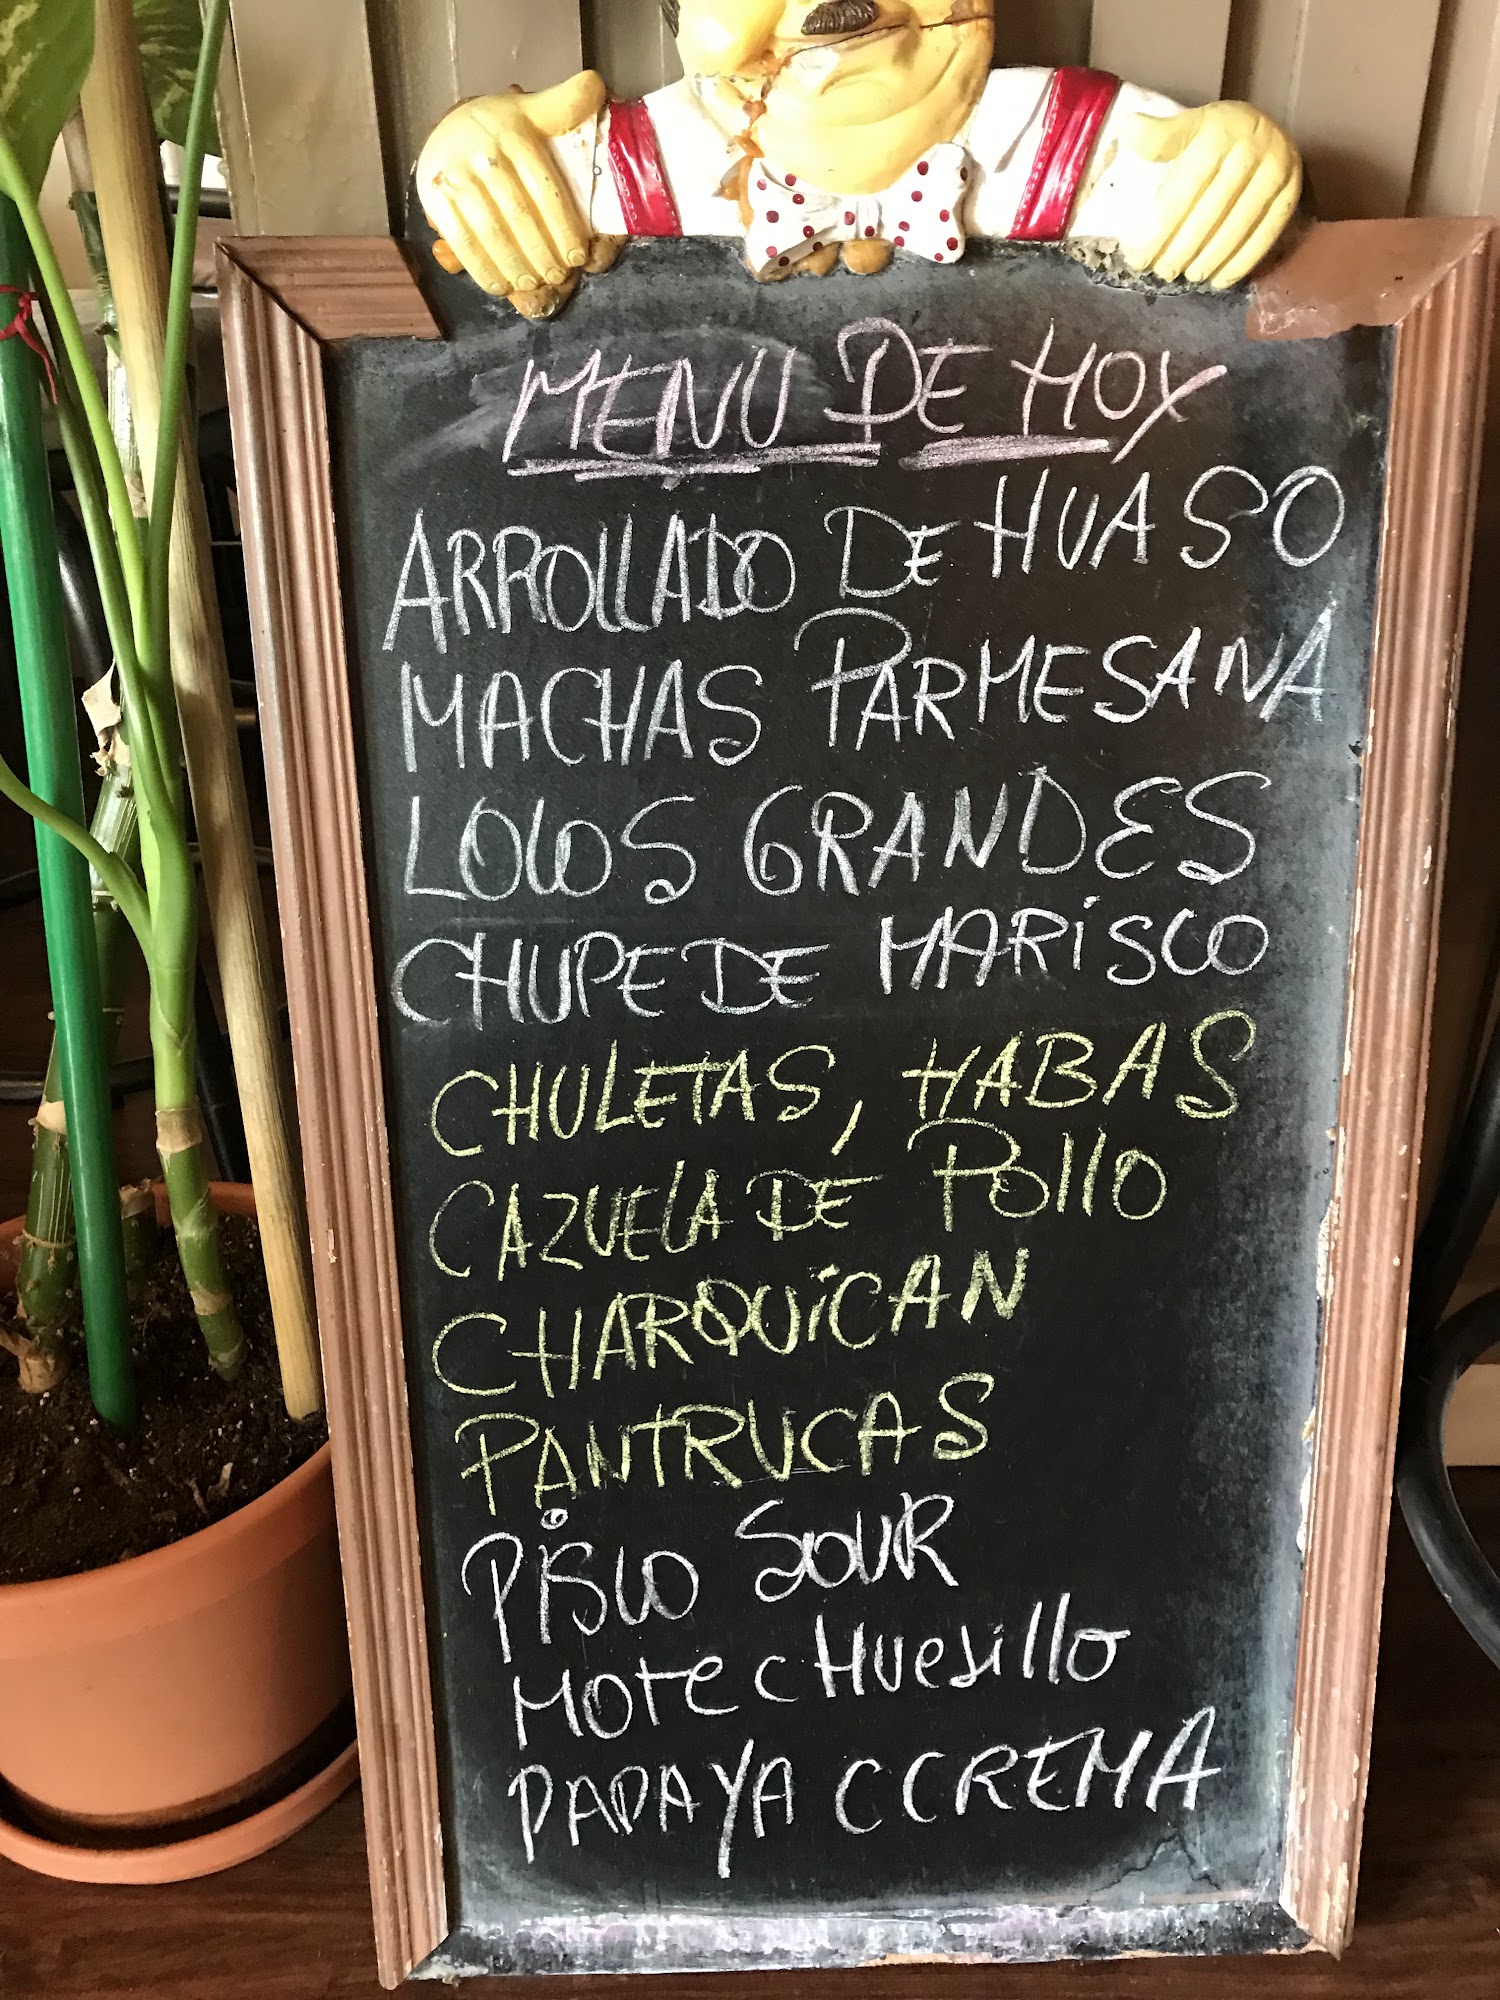 MENU DE HOY
ARROLLADO DE HUASO
MACHAS PARMESANA
LOCOS GRANDES
CHUPE DE MARiSCO
CHULETAS, HABAS
CAZUELA DE Pollo
CHARQUiCAN
PANTRUCAS
PISCO SOUR
MOTE C HUesillo
PAPAYA C CREMA